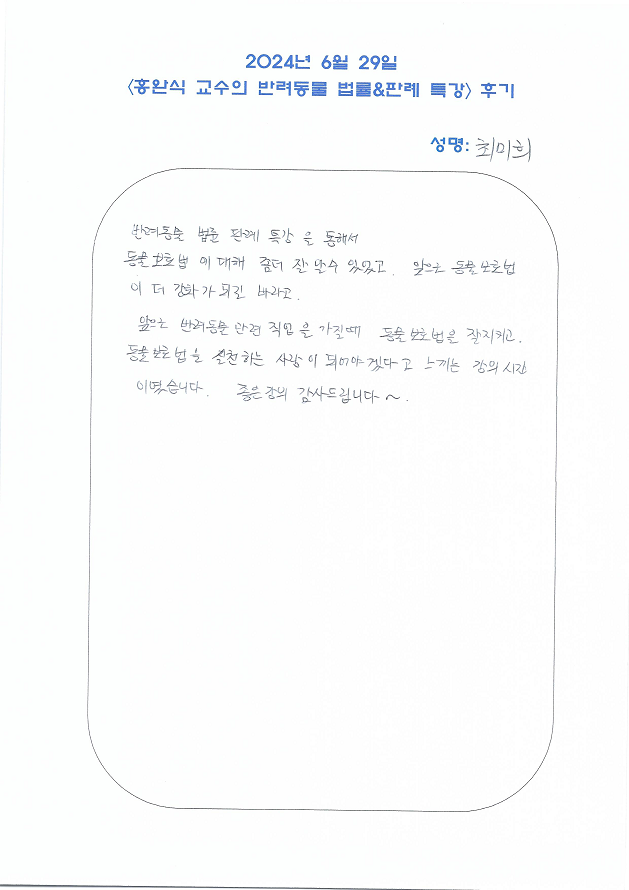 2024년 6월 29일
<홍완식 교수의 반려동물 법률&판례 특강> 후기
성명: 최미희
반려동물 법률 판례 특강 을 통해서
동물보호법 이 대해 좀더 잘 알수 있었고. 앞으로 동물보호법
이 더 강화가 되길 바라고.
앞으로 반려동물 관련 직업 을 가질때 동물보호법을 잘지키고.
동물보호법을 실천하는 사람 이 되어야겠다고 느끼는 강의시간
이였습니다. 좋은강의 감사드립니다~.